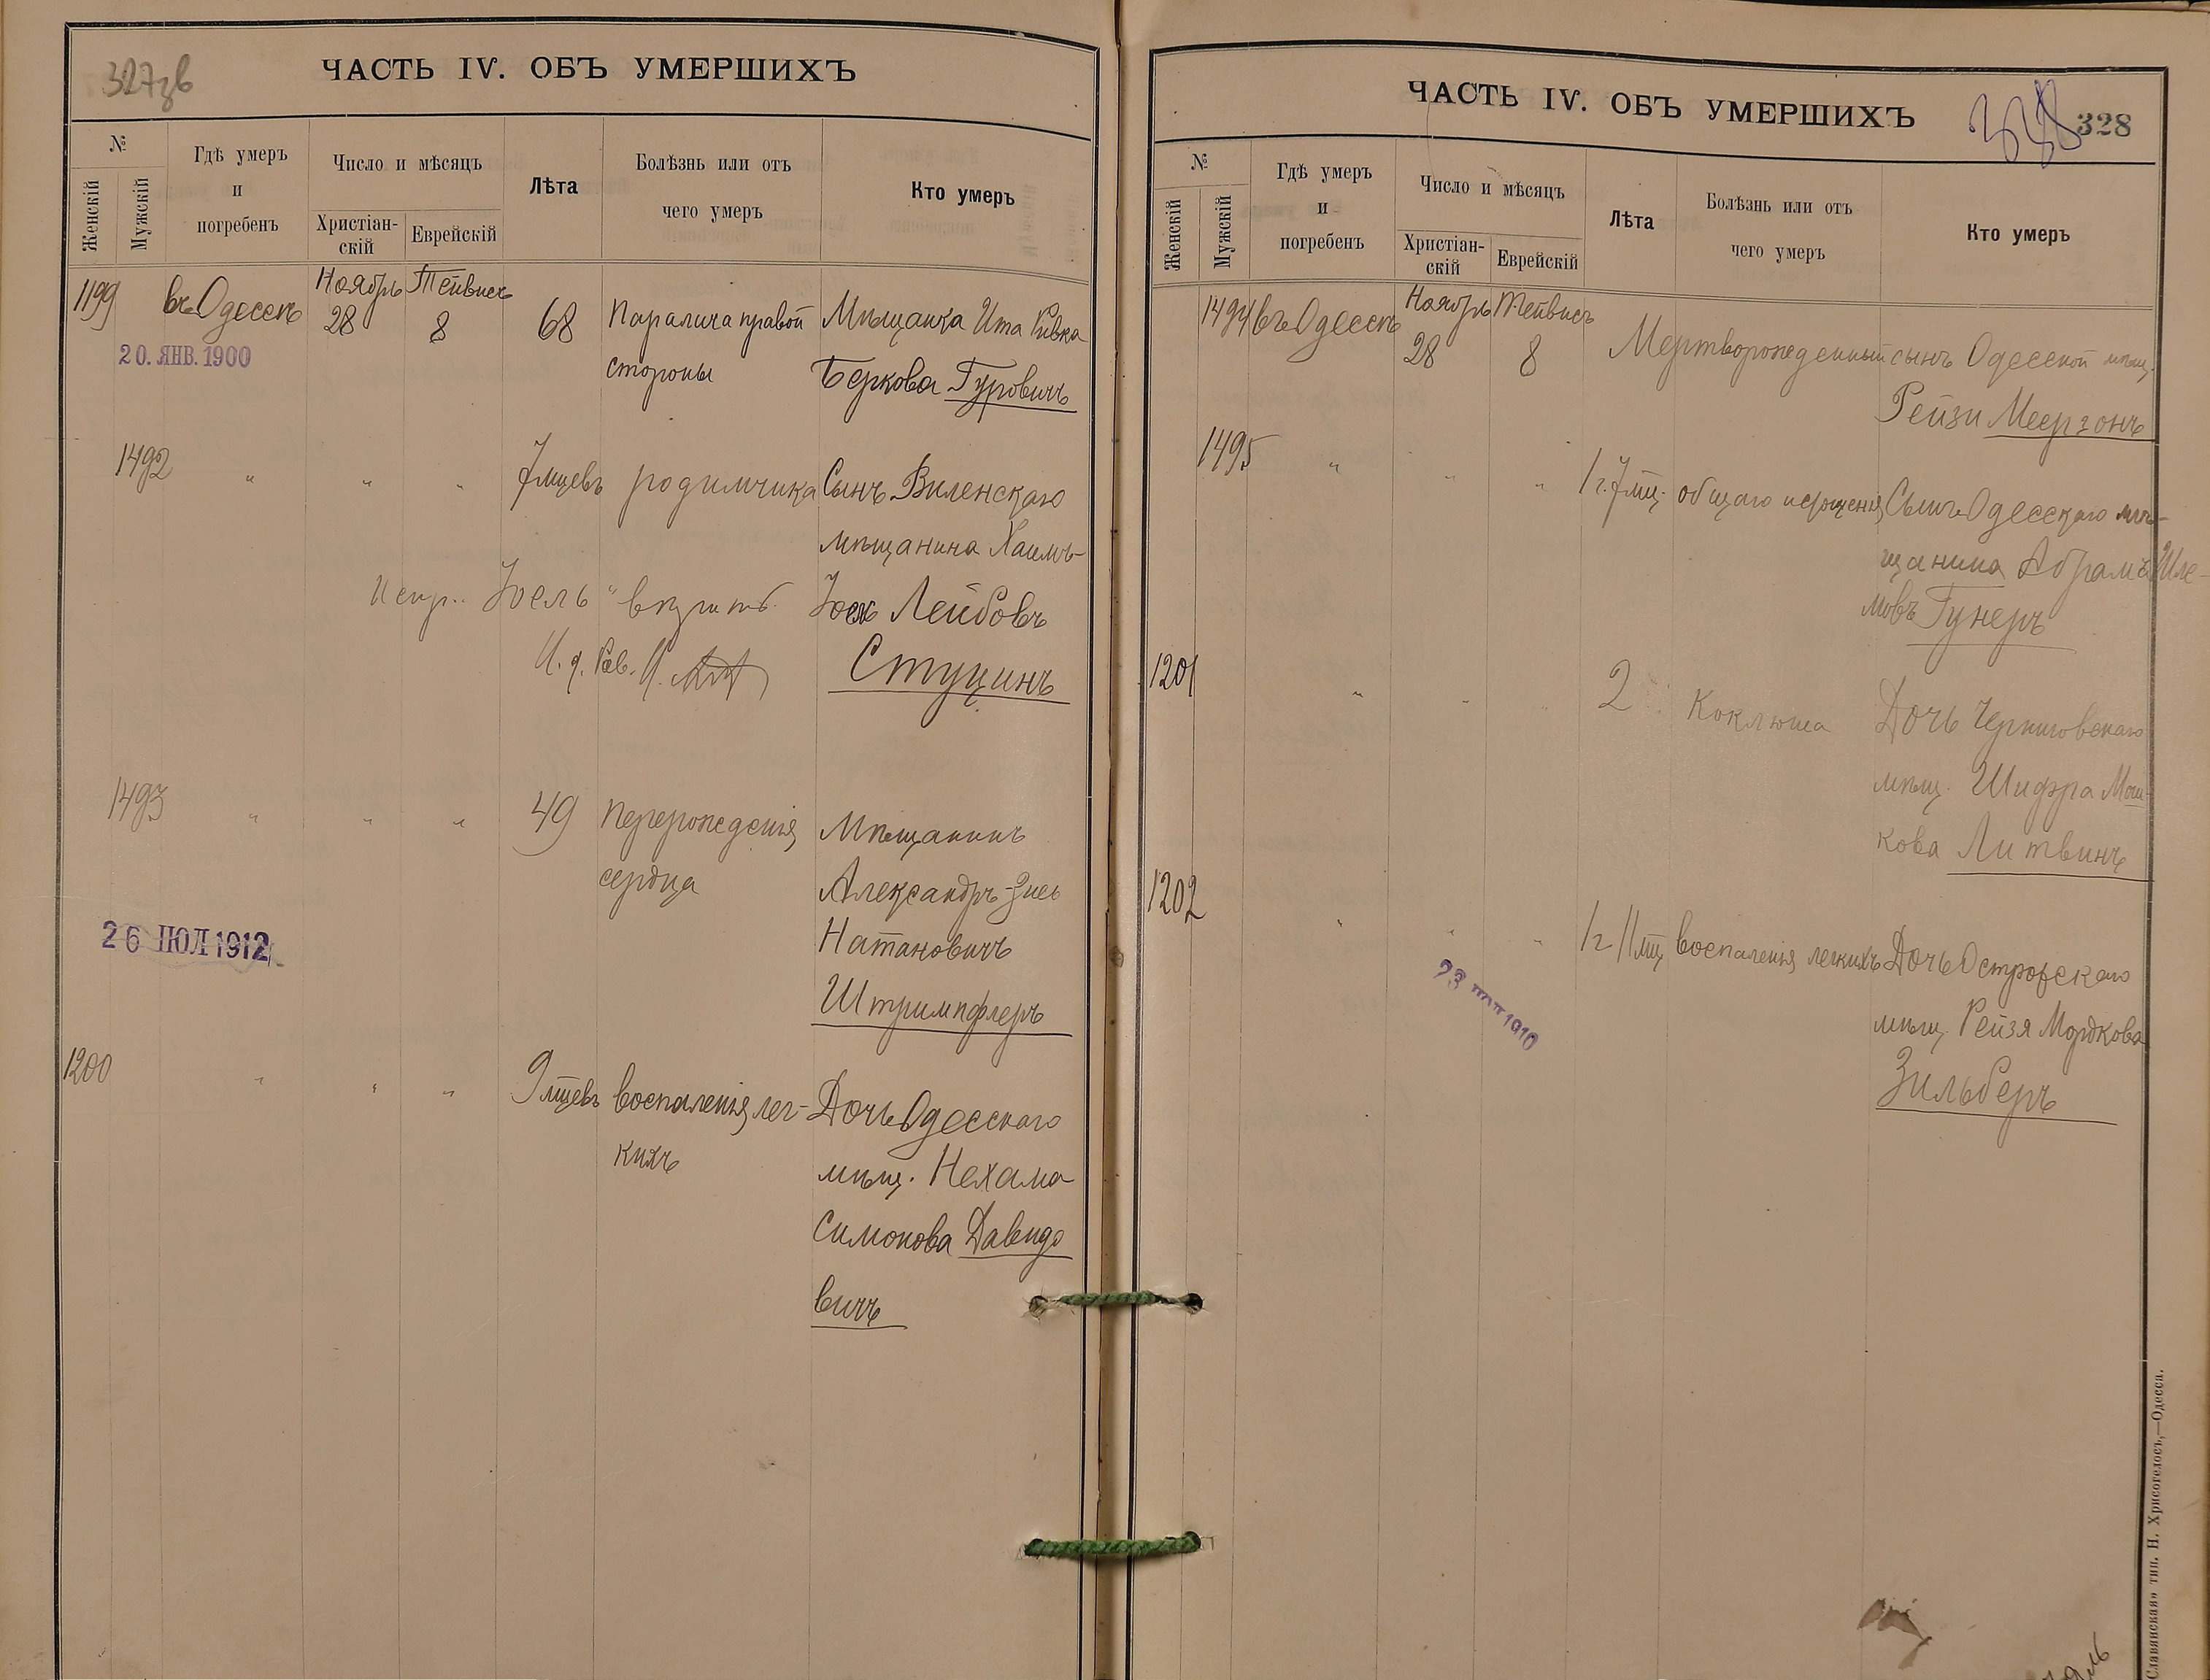 327зв
ЧАСТЬ IV. ОБЪ УМЕРШИХЪ
№
Женскій
Мужскій
Гдѣ умеръ
и
погребенъ
Число и мѣсяцъ
Христіан-
скій
Еврейскій
Лѣта
Болѣзнь или отъ
чего умеръ
Кто умеръ
1199 въ Одессѣ Ноябрь 28 Тейвисъ 8 68 Паралича правой Мѣщанка Ита Ривка
стороны Беркова Гуровичъ
20. ЯНВ. 1900
1492 " " " 7 мцевъ родимчика Сынъ Виленскаго
мѣщанина Хаимъ-
Испр. Іоель "вѣрить Лейбовъ
И. д. Рав.
Стуцинъ
1493 " " " 49 Перерожденія Мѣщанинъ
сердца Александръ-Зись
Натановичъ
Штримпфлеръ
26 ІЮЛ 1912
1200 " " " 9 мцевъ воспаленія лег- Дочь Одесскаго
кихъ мѣщ. Нехама
Симонова Давидо
вичъ
ЧАСТЬ IV. ОБЪ УМЕРШИХЪ
328
328
№
Женскій
Мужскій
Гдѣ умеръ
и
погребенъ
Число и мѣсяцъ
Христіан-
скій
Еврейскій
Лѣта
Болѣзнь или отъ
чего умеръ
Кто умеръ
1494 въ Одессѣ Ноябрь 28 Тейвисъ 8 Мертворожденный сынъ Одесской мѣщ.
Рейзи Меерзонъ
1495 " " " 1 г. 7 мц. общаго истощенія Сынъ Одесскаго мѣ-
щанина Абрамъ Шле-
мовъ Гунеръ
1201 " " " 2 Коклюша Дочь Черниговскаго
мѣщ. Шифра Мош-
кова Литвинъ
1202 " " " 1 г 11 мц воспаленія легкихъ Дочь Острогскаго
мѣщ. Рейзя Мордкова
Зильберъ
1910
Славянская» тип. Н. Хрисогелосъ,—Одесса.